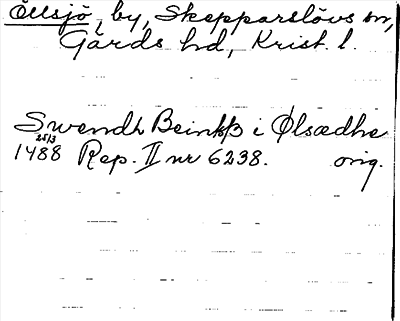 Öllsjö, by, Skepparslövs sn,
Gärds hd, Krist. l.
Swendh Beinkß i Ølsædhe
25/3
1488 Rep. II nr 6238. orig.